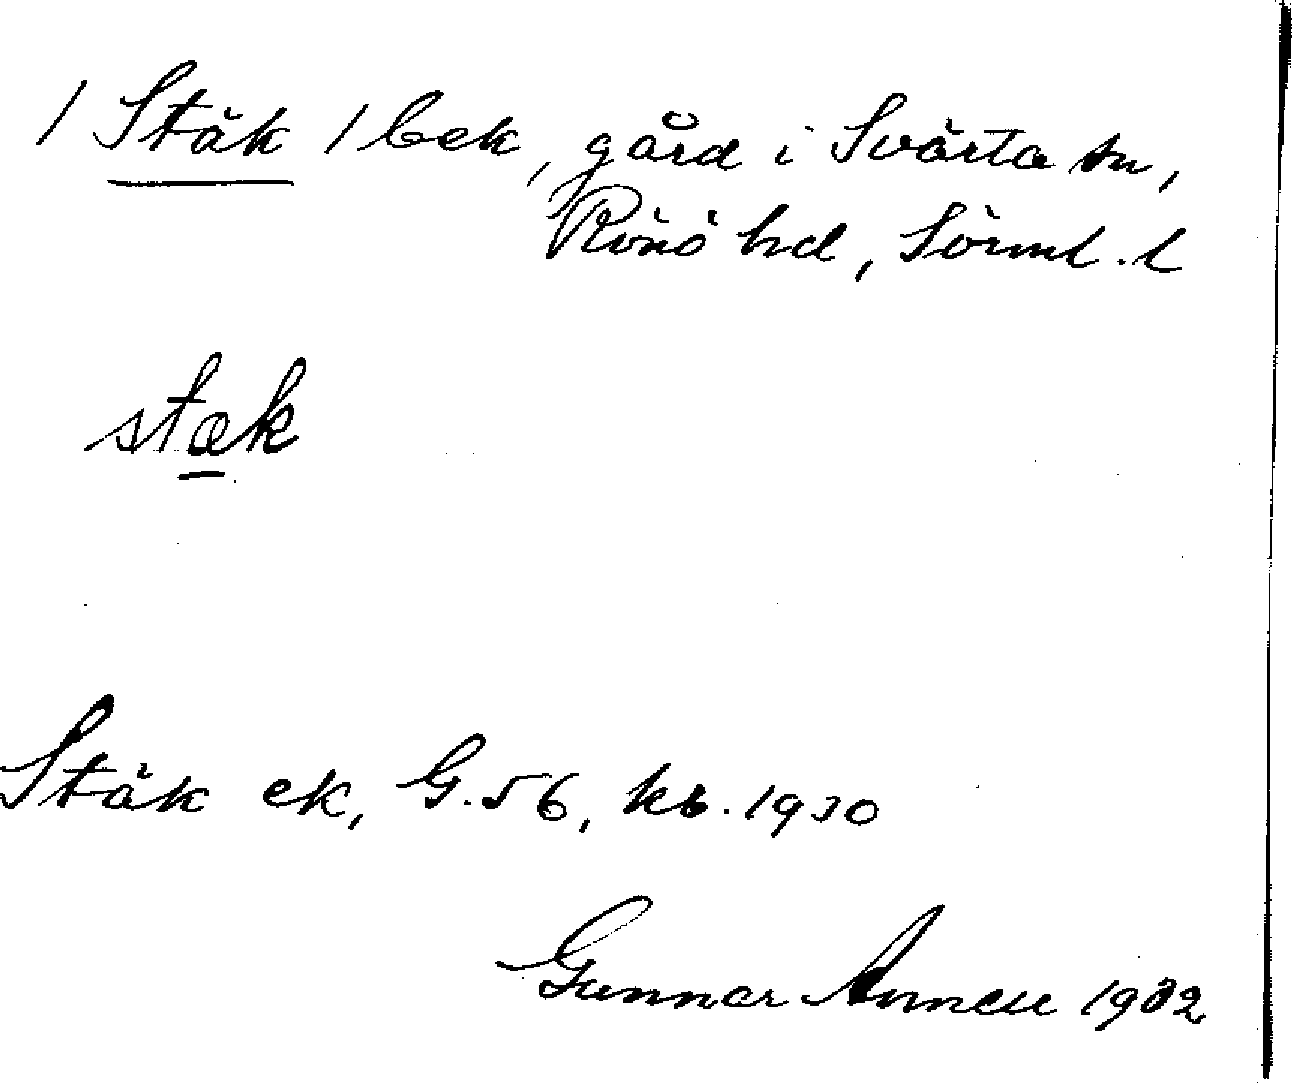 / Stäk / bek, gård i Svärta sn,
Rönö hd, Sörml. l
stæk
Stäk ek, G. 56, kb. 1930
Gunnar 1932